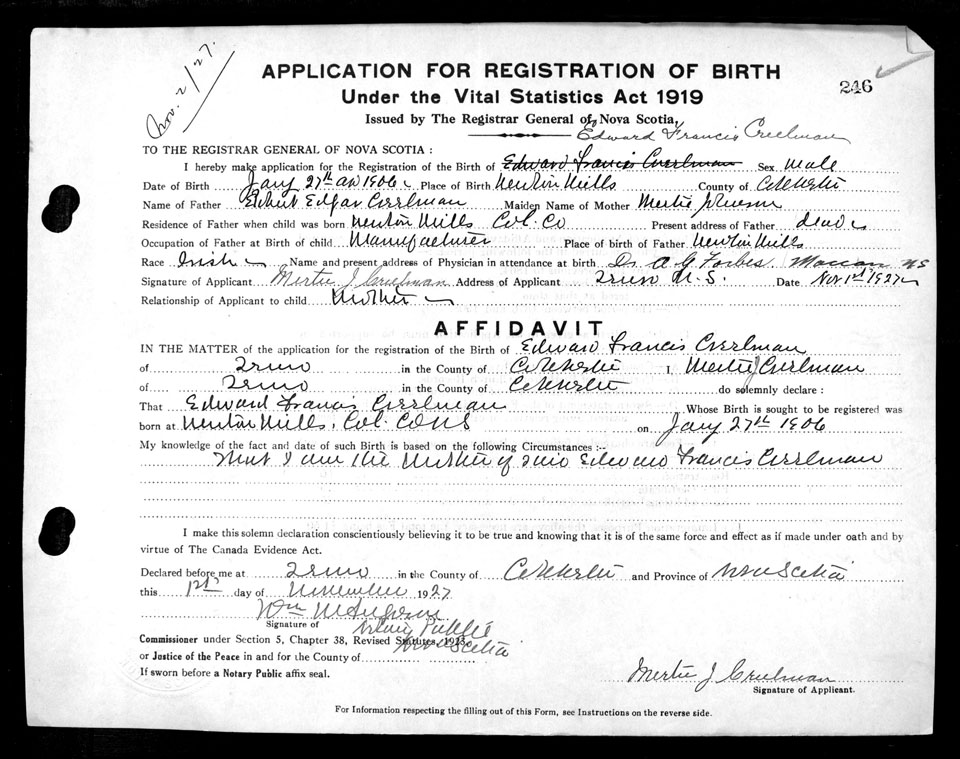 Nov. 2/27.
246
APPLICATION FOR REGISTRATION OF BIRTH
Under the Vital Statistics Act 1919
Issued by The Registrar General of Nova Scotia,
Edward Francis Creelman
TO THE REGISTRAR GENERAL OF NOVA SCOTIA :
I hereby make application for the Registration of the Birth of Edward Francis Creelman Sex Male
Date of Birth Jany 27th AD 1906 Place of Birth Newton Mills County of Colchester
Name of Father Edgar Creelman Maiden Name of Mother Mertie
Residence of Father when child was born Newton Mills Col. Co Present address of Father dead
Occupation of Father at Birth of child Manufacturer Place of birth of Father Newton Mills
Race Irish Name and present address of Physician in attendance at birth Dr A G Forbes Maccan NS
Signature of Applicant Mertie J Creelman Address of Applicant Truro N.S. Date Nov 1st 1927
Relationship of Applicant to child Mother
AFFIDAVIT
IN THE MATTER of the application for the registration of the Birth of Edward Francis Creelman
of Truro in the County of Colchester I, Mertie J Creelman
of Truro in the County of Colchester do solemnly declare :
That Edward Francis Creelman Whose Birth is sought to be registered was
born at Newton Mills, Col. Co NS on Jany 27th 1906
My knowledge of the fact and date of such Birth is based on the following Circumstances :--
That I am the Mother of said Edward Francis Creelman
I make this solemn declaration conscientiously believing it to be true and knowing that it is of the same force and effect as if made under oath and by
virtue of The Canada Evidence Act.
Declared before me at Truro in the County of Colchester and Province of Nova Scotia
this 1st day of November 1927
Wm
Signature of Notary Public
Commissioner under Section 5, Chapter 38, Revised Statutes, 1923, Nova Scotia
or Justice of the Peace in and for the County of
If sworn before a Notary Public affix seal.
Mertie J Creelman
Signature of Applicant.
For Information respecting the filling out of this Form, see Instructions on the reverse side.